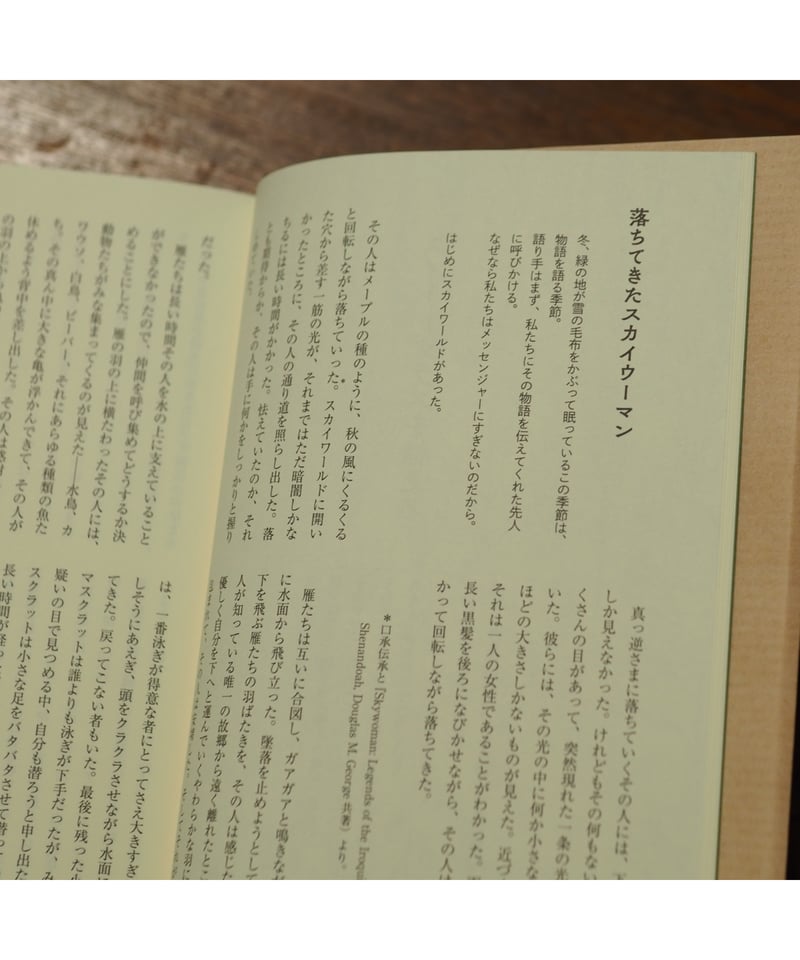 落ちてきたスカイウーマン
冬、緑の地が雪の毛布をかぶって眠っているこの季節は、
物語を語る季節。
語り手はまず、私たちにその物語を伝えてくれた先人
に呼びかける。
なぜなら私たちはメッセンジャーにすぎないのだから。
はじめにスカイワールドがあった。
その人はメープルの種のように、秋の風にくるくる
と回転しながら落ちていった。*スカイワールドに開い
た穴から差す一筋の光が、それまではただ暗闇しかな
かったところに、その人の通り道を照らし出した。落
ちるには長い時間がかかった。怯えていたのか、それ
とも期待からか、その人は手に何かをしっかりと握り
真っ逆さまに落ちていくその人には、
しか見えなかった。けれどもその何もない
くさんの目があって、突然現れた一条の光
いた。彼らには、その光の中に何か小さな
ほどの大きさしかないものが見えた。近づ
それは一人の女性であることがわかった。
長い黒髪を後ろになびかせながら、その人は
かって回転しながら落ちてきた。
*口承伝承と『Skywoman: Legends of the Iroqu
Shenandoah, Douglas M. George 共著）より。
雁たちは互いに合図し、ガアガアと鳴きな
に水面から飛び立った。墜落を止めようとして
下を飛ぶ雁たちの羽ばたきを、その人は感じた
人が知っている唯一の故郷から遠く離れたとこ
優しく自分を下へと運んでいくやわらかな羽に
だった。
雁たちは長い時間その人を水の上に支えていること
ができなかったので、仲間を呼び集めてどうするか決
めることにした。雁の羽の上に横たわったその人には、
動物たちがみな集まってくるのが見えた――水鳥、カ
ワウソ、白鳥、ビーバー、それにあらゆる種類の魚た
ち。その真ん中に大きな亀が浮かんできて、その人が
休めるよう背中を差し出した。その人は感謝
は、一番泳ぎが得意な者にとってさえ大きすぎ
しそうにあえぎ、頭をクラクラさせながら水面に
てきた。戻ってこない者もいた。最後に残った
マスクラットは誰よりも泳ぎが下手だったが、み
疑いの目で見つめる中、自分も潜ろうと申し出た
スクラットは小さな足をバタバタさせて潜って
長い時間が経っ